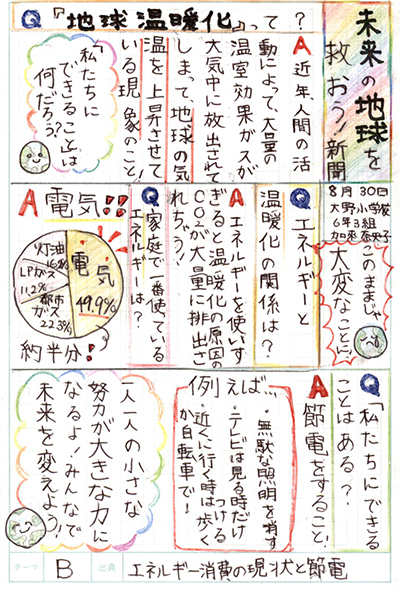 未来の地球を
救おう!新聞
8月30日
大野小学校
6年3組
加來奈央子
このままじゃ
大変なことに!
Q『地球温暖化』って?
A近年、人間の活
動によって、大量の
温室効果ガスが
大気中に放出されて
しまって、地球の気
温を上昇させて
いる現象のこと!
「私たちに
できることは
何だろう?」
Qエネルギーと
温暖化の関係は?
Aエネルギーを使いす
ぎると温暖化の原因の
CO₂が大量に排出さ
れちゃう!
Q家庭で一番使っている
エネルギーは?
A電気!!
電気
49.9%
都市
ガス
22.3%
LPガス
11.2%
灯油
約半分!
Q「私たちにできる
ことはある?」
A節電をすること!
例えば…
・無駄な照明を消す
・テレビは見る時だけ
つける
・近くに行く時は歩く
か自転車で!
一人一人の小さな
努力が大きな力に
なるよ!みんなで
未来を変えよう!
テーマ B 出典 エネルギー消費の現状と節電